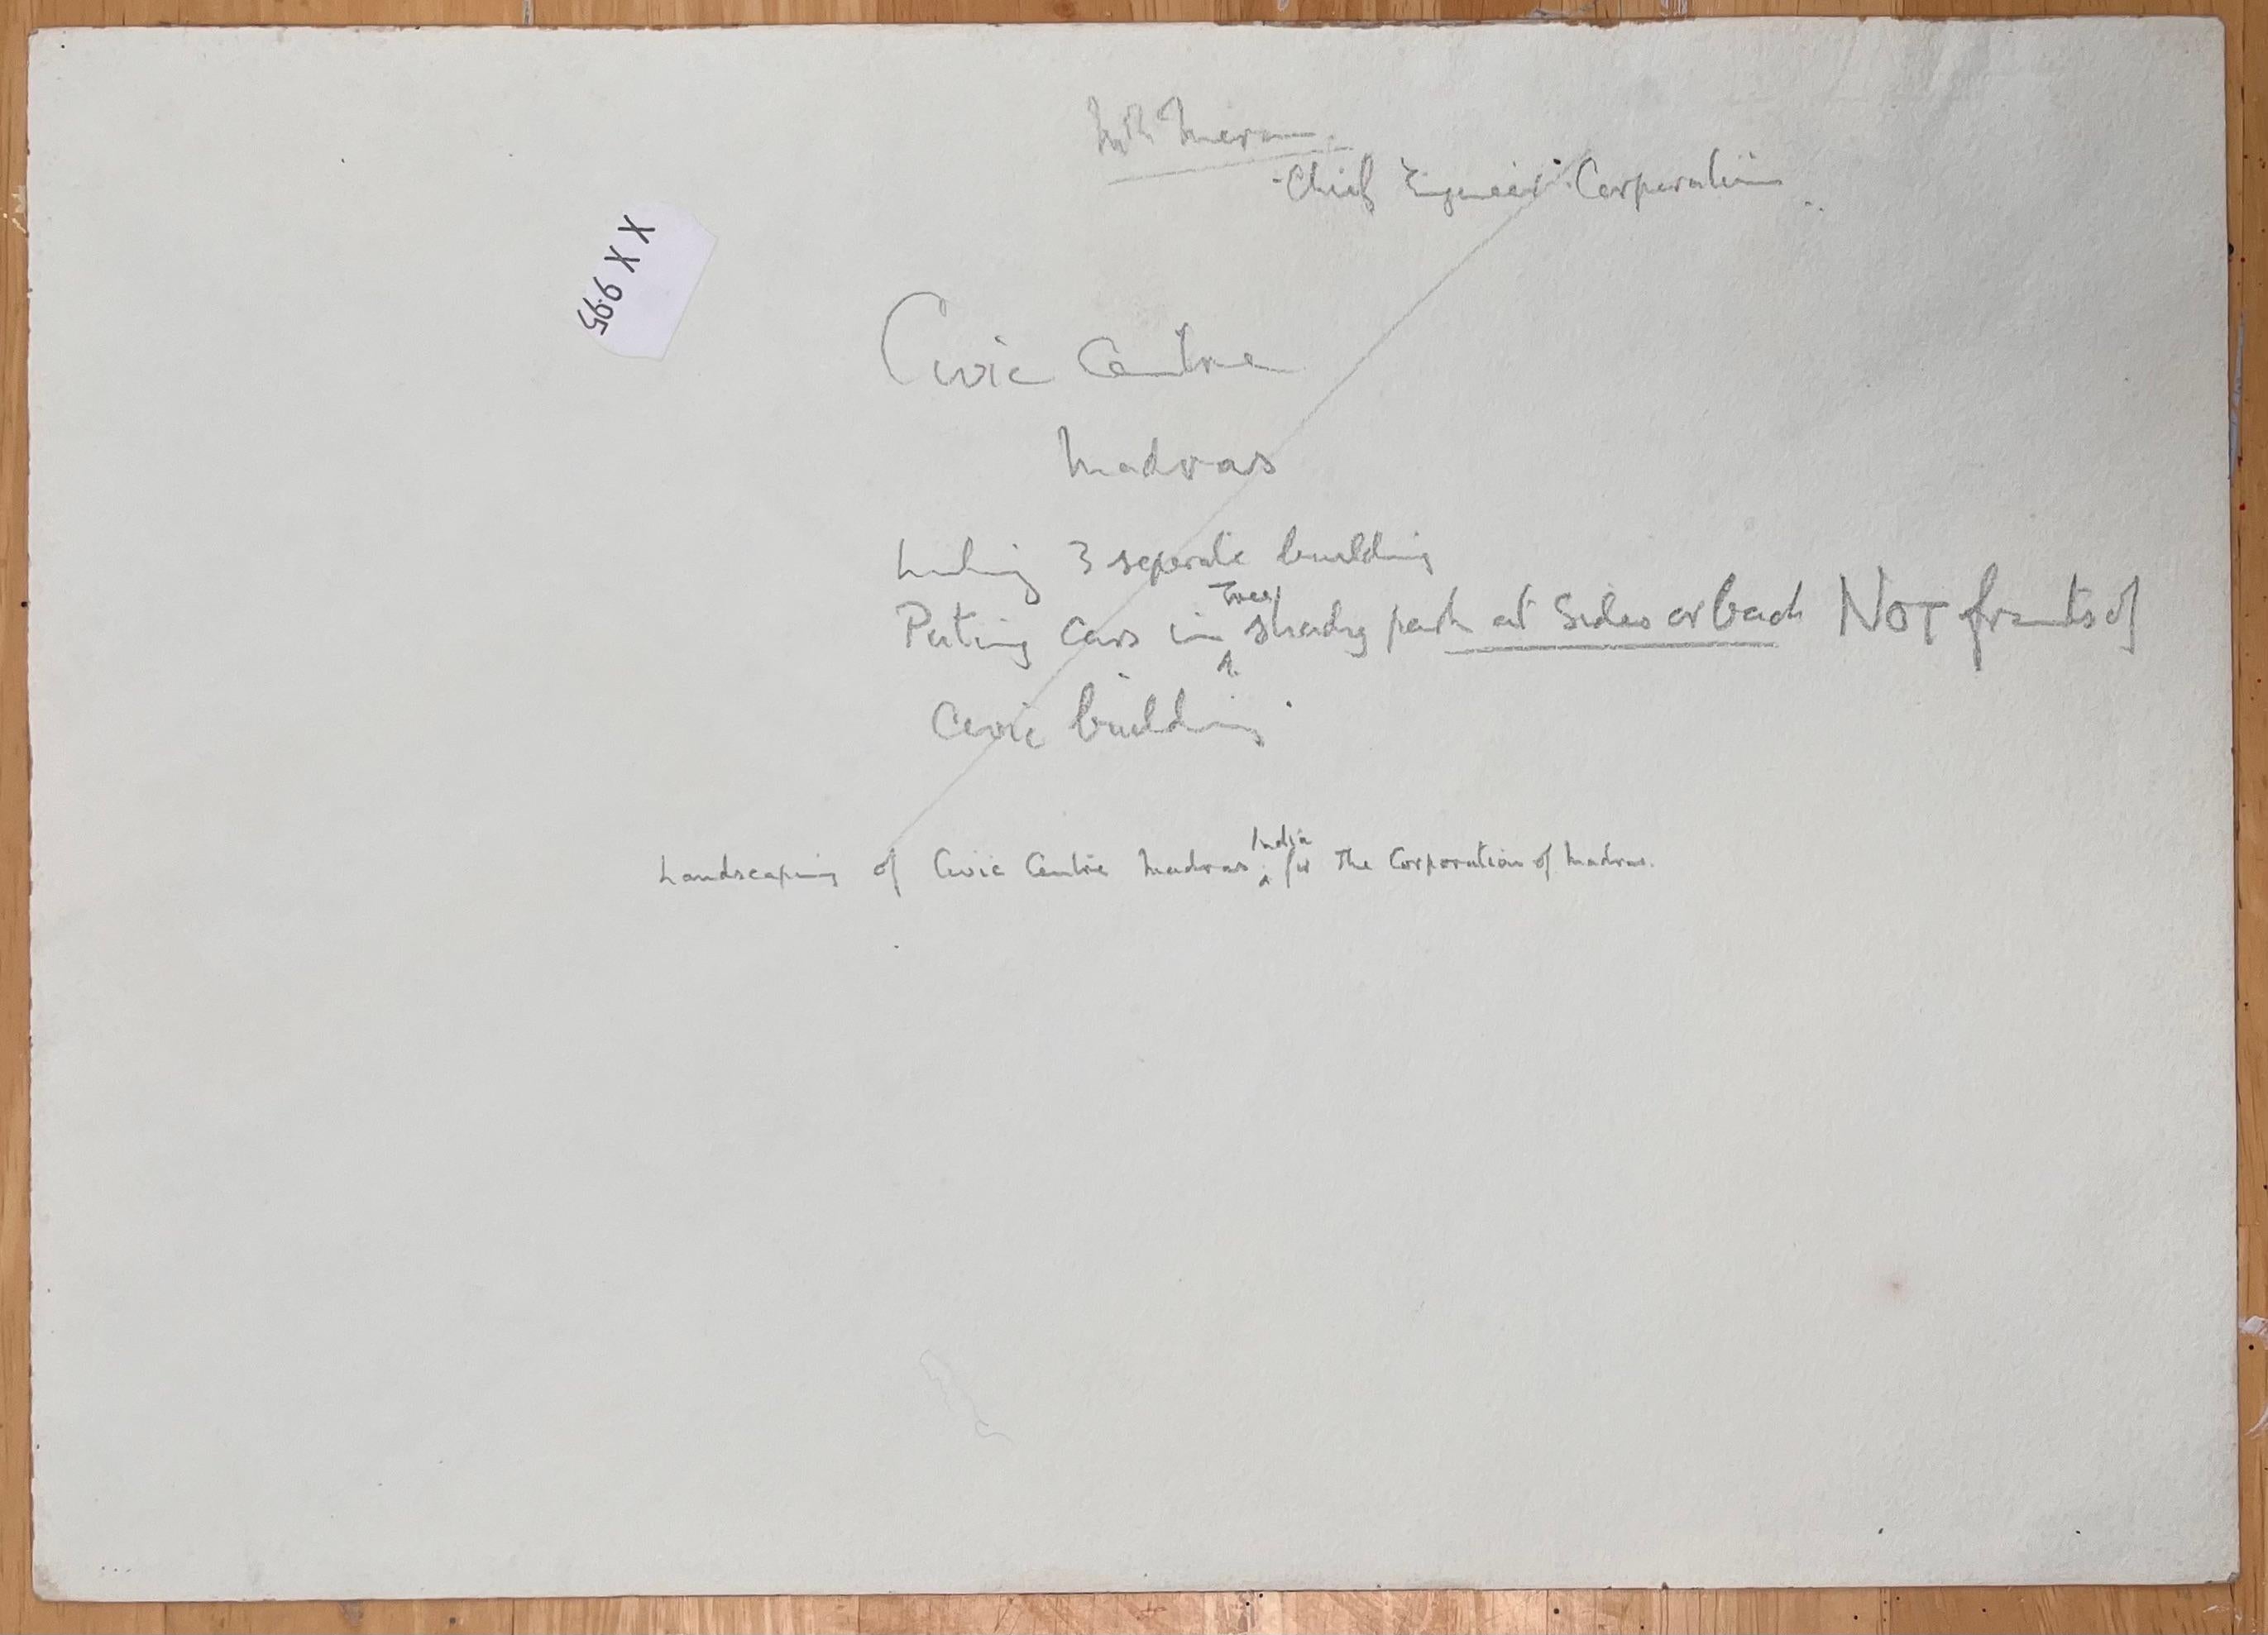 Mr
Chief Engineer Corporation
X X 9.95
Civic Centre
Madras
Linking 3 seperate building
Puting cars in tree shady park at sides or back NOT fronts of
Civic building
Landscaping of Civic Centre Madras India for The Corporation of Madras.